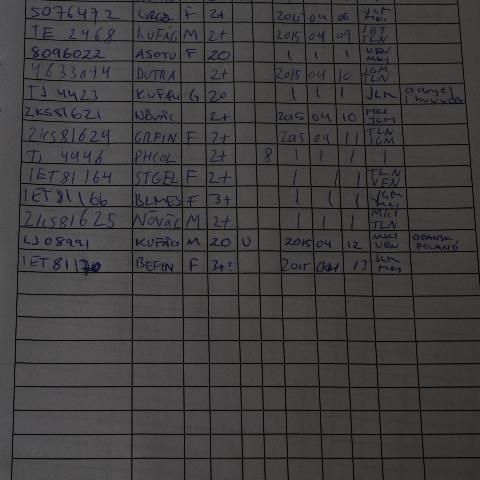 5076472 F 2+ 2015 04 06 JGM MKI
TE 2468 KUFÅG M 2+ 2015 04 09 JBT TLN
8096022 ASOTU F 20 1 1 1 VEN MKI
4633074 DUTRA 2+ 2015 04 10 JGM TLN
TJ 4423 KUFÅG G 20 1 1 1 JGM
2KS81621 NÖVÄC 2+ 2015 04 10 MKI JGM
2KS81624 GRFIN F 2+ 2015 04 11 TLN JGM
TJ 4446 PHCOL 2+ 8 1 1 1 1
1ET81164 STGEL F 2+ 1 1 1 TLN VEN
1ET81166 BLMES F 3+ 1 1 1 JGM MKI
2KS81625 NÖVÄC M 2+ 1 1 1 MKI TLN
KUFÅG M 20 U 2015 04 12 MKI VEN GDANSK POLAND
1ET81170 BEFIN F 3+? 2015 04 13 JGM MKI